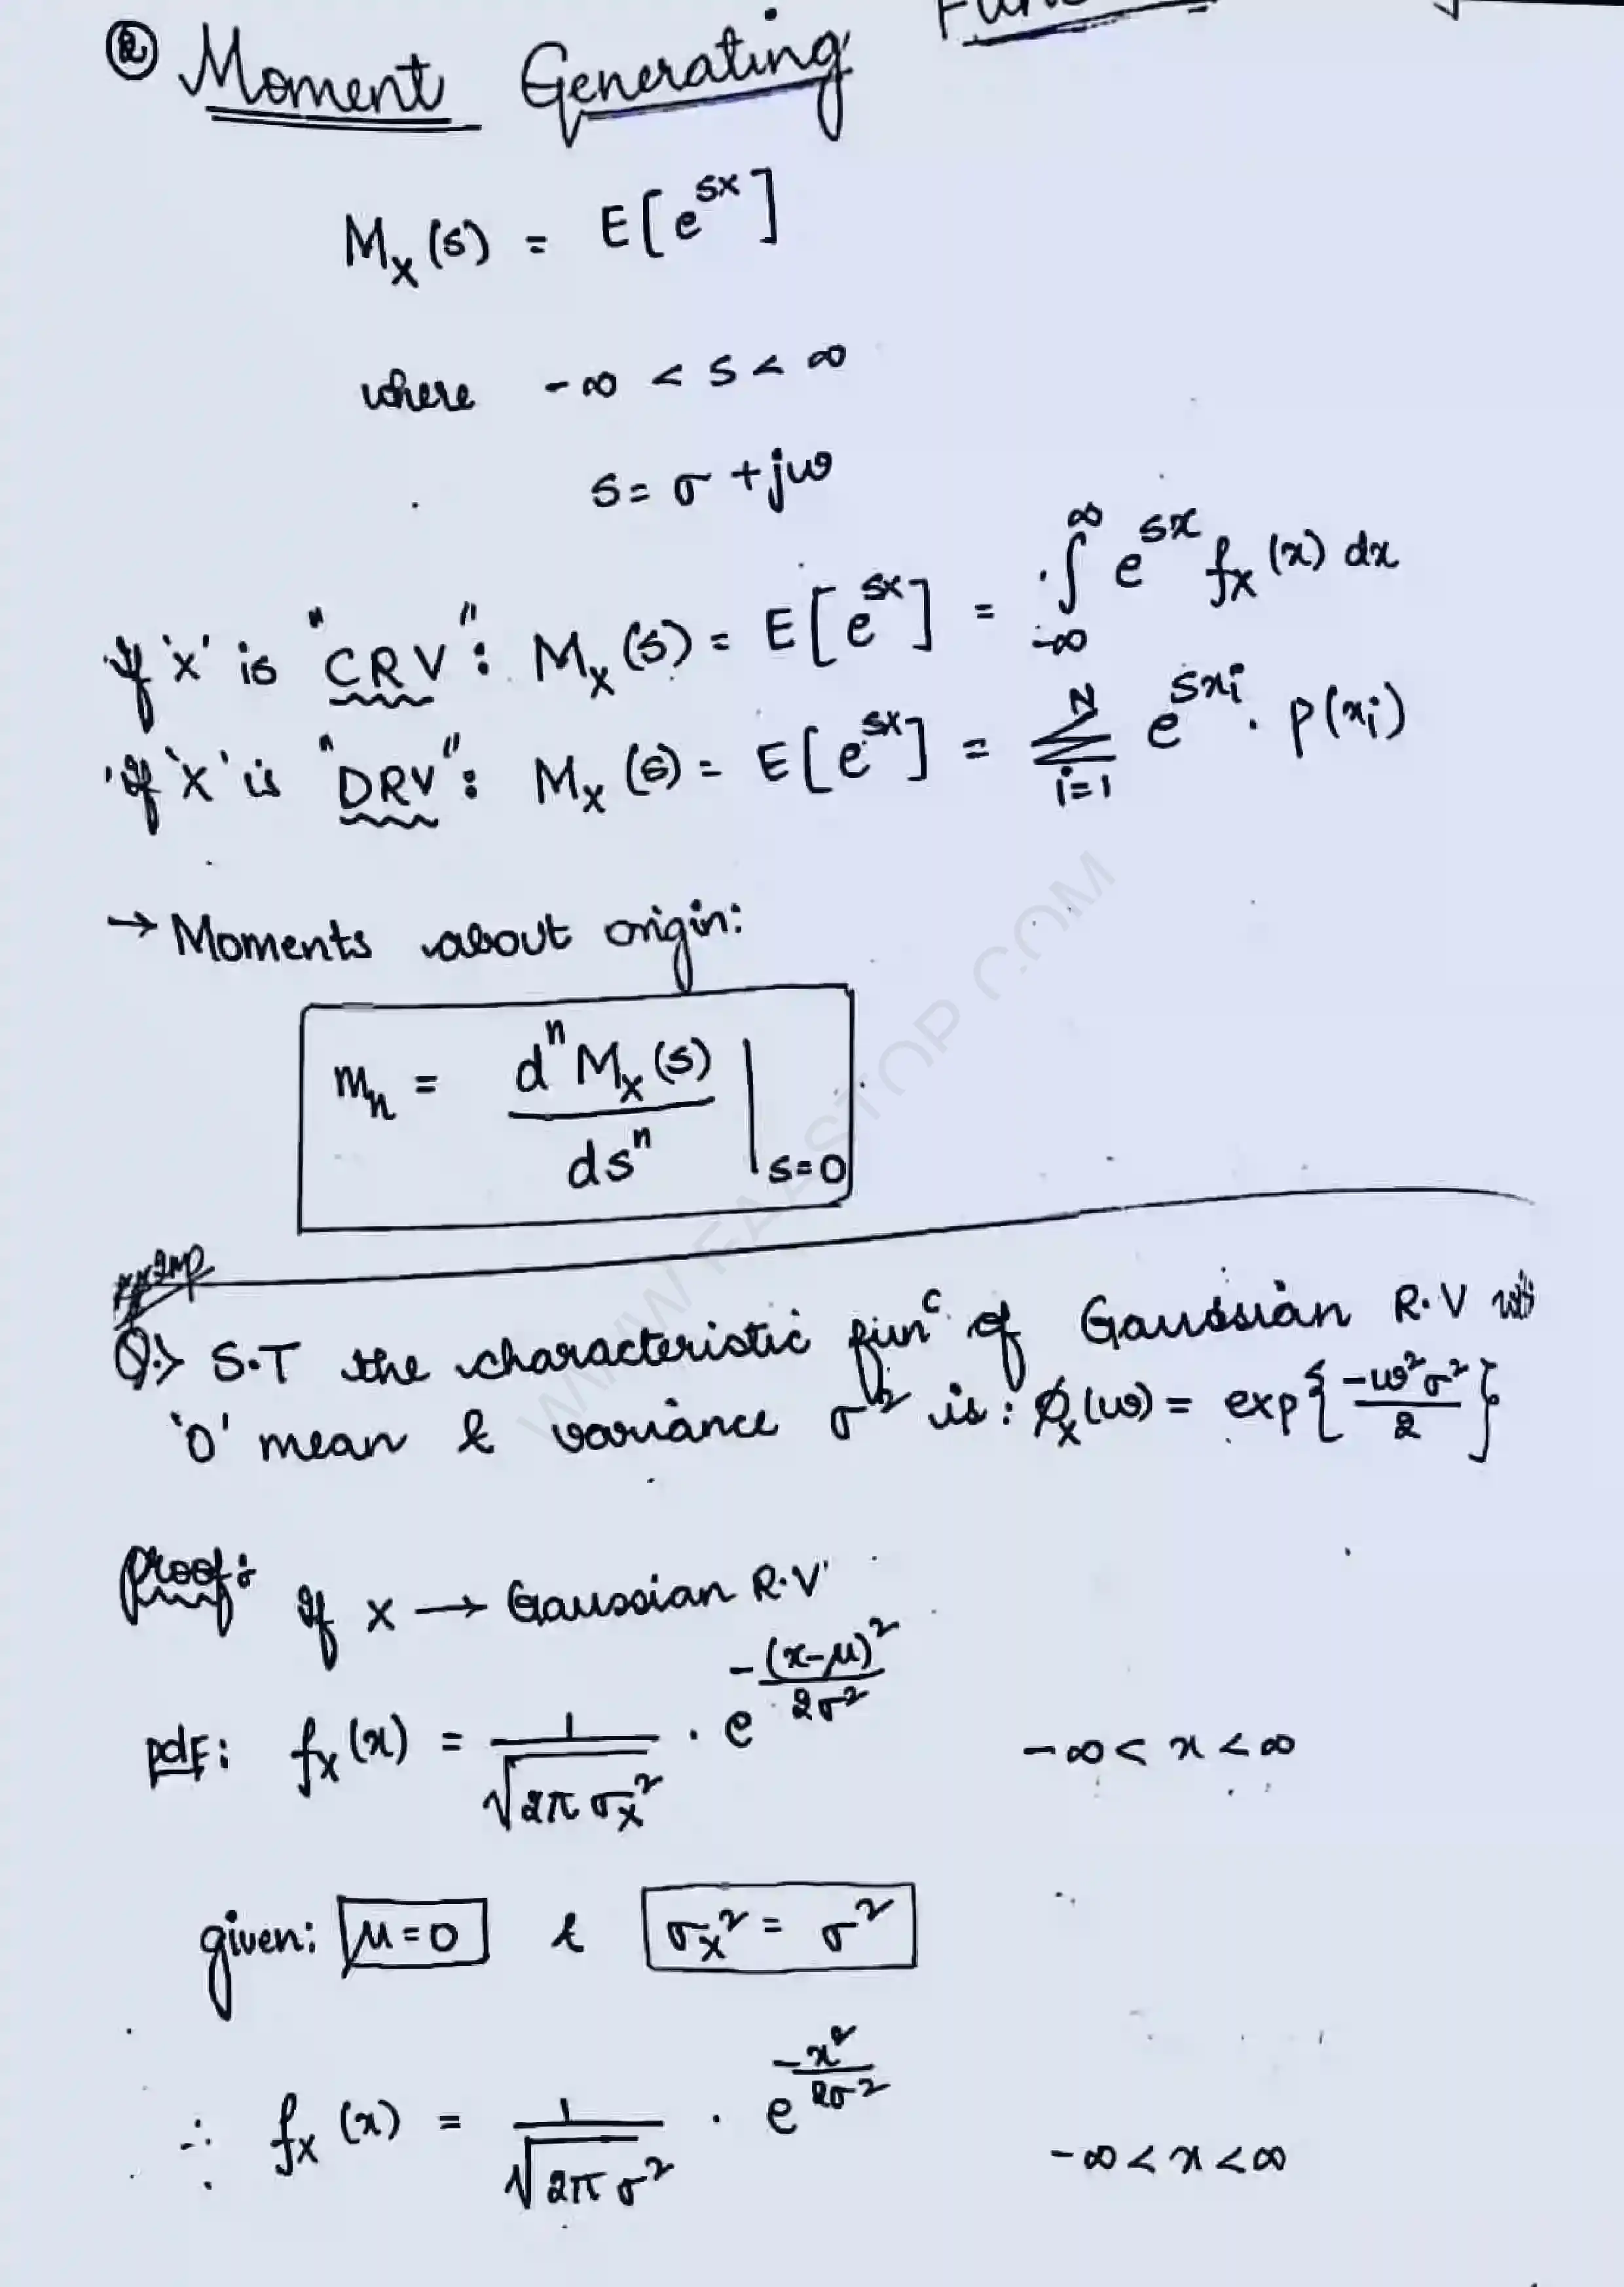 ② Moment Generating
M_X(s) = E[e^{sx}]
where -∞ < s < ∞
s = σ + jω
If 'x' is "CRV": M_X(s) = E[e^{sx}] = ∫_{-∞}^{∞} e^{sx} f_X(x) dx
If 'x' is "DRV": M_X(s) = E[e^{sx}] = ∑_{i=1}^{N} e^{sx_i} . P(x_i)
→ Moments about origin:
m_n = d^n M_X(s) / ds^n |_{s=0}
Q.> S.T the characteristic fun^c of Gaussian R.V
'0' mean & variance σ² is: ϕ_X(ω) = exp{-ω²σ²/2}
Proof: If x → Gaussian R.V
pdf: f_X(x) = 1/√(2πσ_X²) . e^{-(x-μ)²/2σ²} -∞ < x < ∞
given: μ=0 & σ_X² = σ²
∴ f_X(x) = 1/√(2πσ²) . e^{-x²/2σ²} -∞ < x < ∞